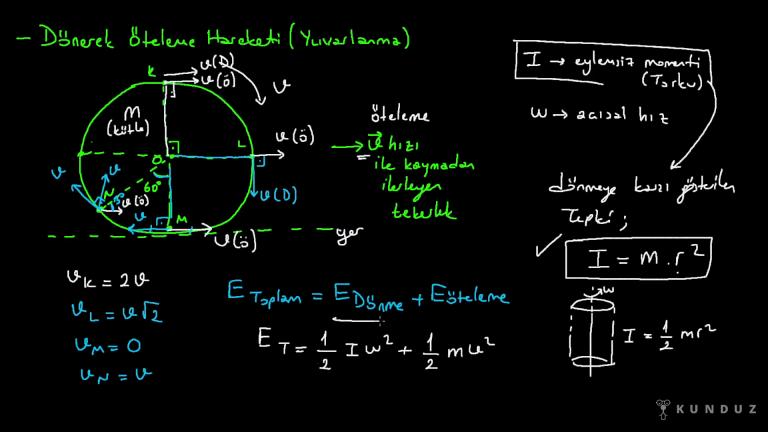 — Dönerek Öteleme Hareketi (Yuvarlanma)
K
v(D)
v(Ö)
v
M
(kütle)
O
L
v(Ö)
v(D)
60°
N
v
v
v(Ö)
v
M
v(Ö)
yer
öteleme
→ v hızı
ile kaymadan
ilerleyen
tekerlek
I → eylemsiz momenti
(Torku)
w → açısal hız
dönmeye karşı gösterilen
Tepki ;
I = m . r²
w
I = 1/2 mr²
v_K = 2v
v_L = v√2
v_M = 0
v_N = v
E Toplam = E Dönme + E öteleme
E_T = 1/2 I w² + 1/2 m v²
KUNDUZ